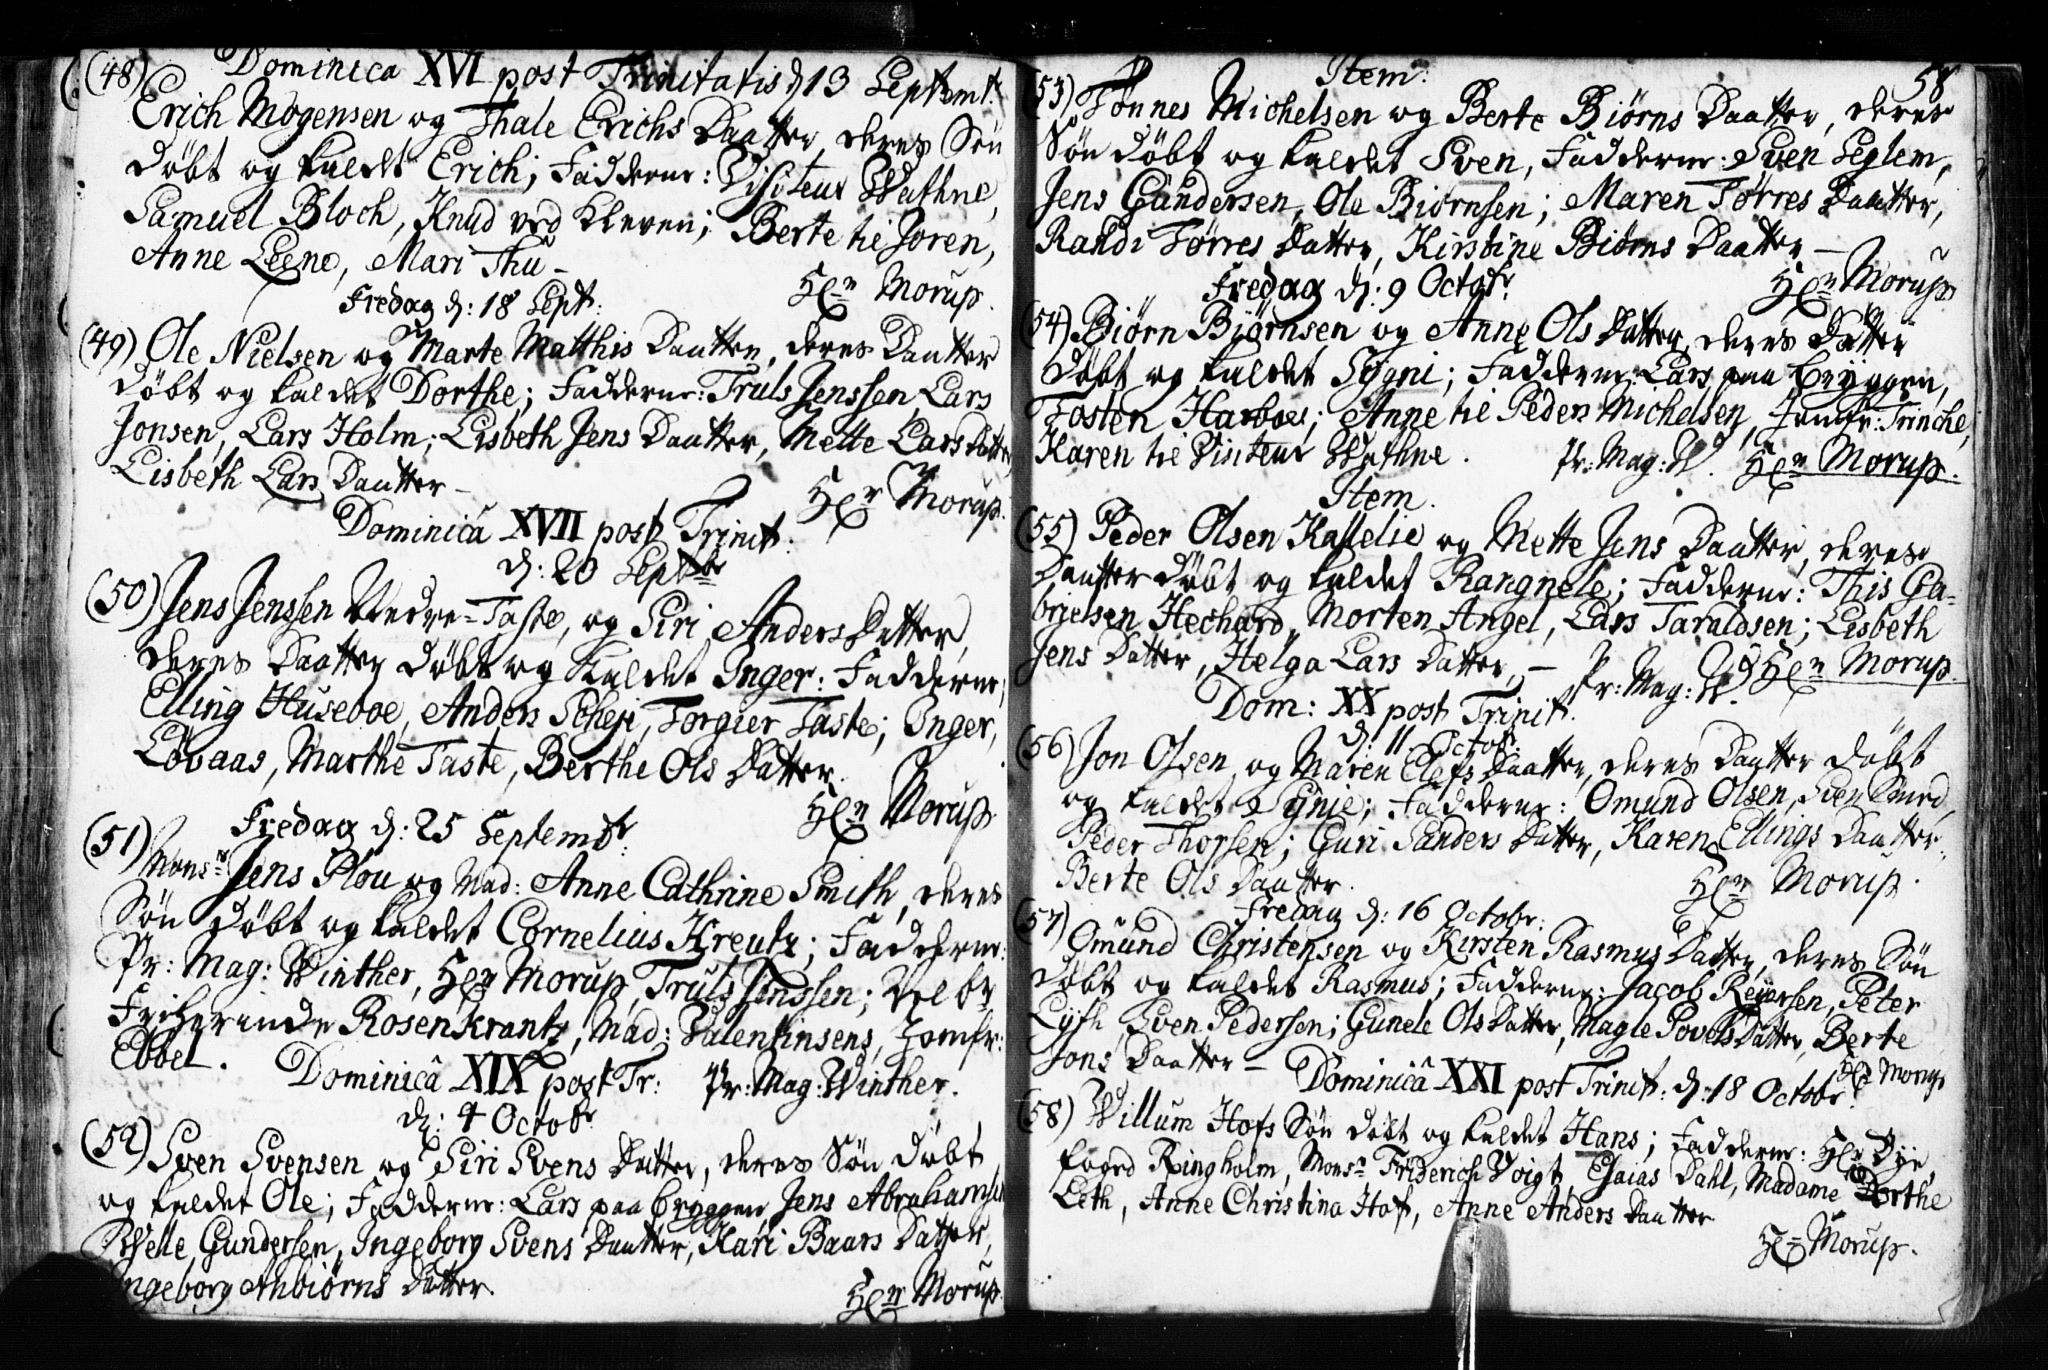 Dominica XVI post Trinitatis d 13 Septemt.
(48) Erich Mogensen og Thale Erichs Daatter, deres Søn
døbt og kaldet Erich; Fadderne: Visiteur Wathne,
Samuel Bloch, Knud ved Kleven; Berte til Joren,
Anne Leene, Mari Thu —
Hr. Morup.
Fredag d: 18 Sept:
(49) Ole Nielsen og Marte Matthis Daatter, deres Daatter
døbt og kaldet Dorthe; Fadderne: Truls Jenssen, Lars
Jonsen, Lars Holm; Lisbeth Jens Daatter, Mette Lars Datter
Lisbeth Lars Daatter —
Hr. Morup.
Dominica XVII post Trinit:
d: 20 Septbr
(50) Jens Jenssen Nedre-Taste, og Siri Anders Datter,
deres Daatter døbt og kaldet Inger: Fadderne,
Elling Huseboe, Anders Scheje, Torgier Taste; Inger,
Lovaas, Marthe Taste, Berthe Ols Datter.
Hr. Morup
Fredag d: 25 Septembr:
(51) Monsr Jens Plou og Mad: Anne Cathrine Smith, deres
Søn døbt og kaldet Cornelius Kreutz; Fadderne:
Pr: Mag: Winther, Hr Morup, Truls Jenssen; Velbr
Friherinde Rosenkrantz, Mad: Valentinsens, Jomfr:
Ebbel.
Dominica XIX post Tr: Pr: Mag: Winther.
d: 4 Octobr
(52) Sven Svensen og Siri Svens Datter, deres Søn døbt
og kaldet Ole; Fadderne: Lars paa Bryggen, Jens Abrahamsen
Gundersen, Ingeborg Svens Daatter, Kari Baars Datter,
Ingeborg Anbiørns Datter.
Hr. Morup.
58
Item:
(53) Tønnes Michelsen og Berte Biørns Daatter, deres
Søn døbt og kaldet Sven, Fadderne: Sven Seglem,
Jens Gundersen, Ole Biørnsen; Maren Tørres Daatter,
Randi Tørres Datter, Kirstine Biørns Daatter —
Hr. Morup
Fredag d: 9 Octobr:
(54) Biørn Biørnsen og Anne Ols Datter, deres Datter
døbt og kaldet Sygni; Fadderne: Lars paa Bryggen,
Tosten Harboe; Anne til Peder Michelsen, Jomfr: Trinche,
Karen til Visiteur Wathne.
Pr: Mag: W. Hr. Morup.
Item.
(55) Peder Olsen Kastelie og Mette Jens Daatter, deres
Daatter døbt og kaldet Rangnele; Fadderne: This Ga-
brielsen Hechard, Morten Angel, Lars Taraldsen; Lisbeth
Jens Datter, Helga Lars Datter, —
Pr: Mag: W. og Hr. Morup.
Dom: XX post Trinit.
d: 11 Octob:
(56) Jon Olsen og Maren Elefs Daatter, deres Daatter døbt
og kaldet Synie; Fadderne: Omund Olsen, Sven Smed,
Peder Thorsen; Guri Sanders Datter, Karen Ellings Daatter,
Berte Ols Daatter.
Hr. Morup.
Fredag d: 16 Octobr:
(57) Omund Christensen og Kirsten Rasmus Datter, deres Søn
døbt og kaldet Rasmus; Fadderne: Jacob Reyersen, Peter
Lyth, Sven Pedersen; Gunele Ols Datter, Magle Povels Datter, Berte
Jons Daatter —
Hr. Morup
Dominica XXI post Trinit: d: 18 Octobr.
(58) Willum Hofs Søn døbt og kaldet Hans; Fadderne: Hr Bye,
foged Ringholm, Monsr Friderich Voigt, Esaias Dahl, Madame Dorthe
Leth, Anne Christina Hof, Anne Anders Daatter
Hr. Morup.